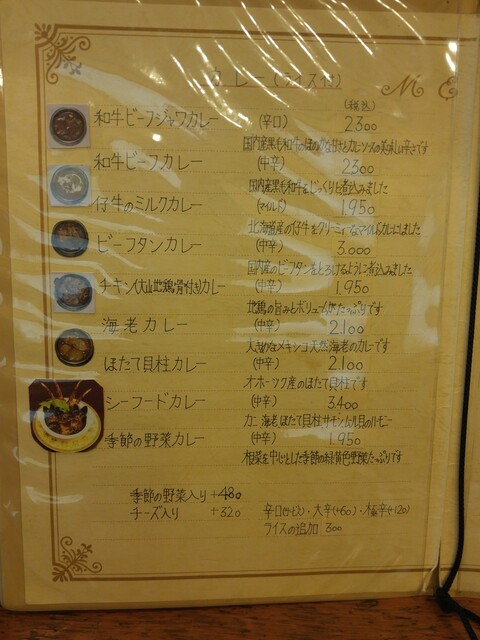 カレー(ライス付)
ME
(税込)
和牛ビーフジャワカレー (辛口) 2300
国内産黒毛和牛のほのかな甘さとカレーソースの美味しい辛さです
和牛ビーフカレー (中辛) 2300
国内産黒毛和牛をじっくりと煮込みました
仔牛のミルクカレー (マイルド) 1.950
北海道産の仔牛をクリーミィなマイルドカレーにしました
ビーフタンカレー (中辛) 3.000
国内産のビーフタンをとろけるように煮込みました
チキン(大山地鶏・骨付き)カレー (中辛) 1.950
地鶏の旨みとボリュームがたっぷりです
海老カレー (中辛) 2.100
大きめなメキシコ天然海老のカレーです
ほたて貝柱カレー (中辛) 2.100
オホーツク産のほたて貝柱です
シーフードカレー (中辛) 3.400
カニ 海老 ほたて貝柱 サーモン ムール貝のハーモニー
季節の野菜カレー (中辛) 1.950
根菜を中心とした季節の緑黄色野菜たっぷりです
季節の野菜入り +480
チーズ入り +320 辛口(サービス)・大辛(+60)・極辛(+120)
ライスの追加 300